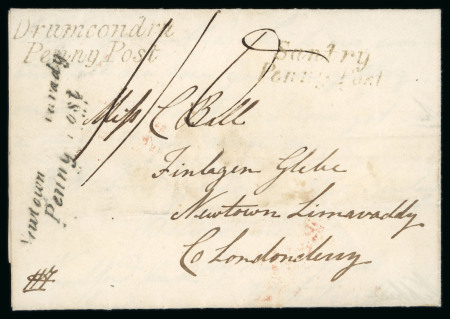 Drumcondra
Penny Post
Santry
Penny Post
Penny Post
Miss C Ball
Finlagen Glebe
Newtown Limavaddy
Co Londonderry